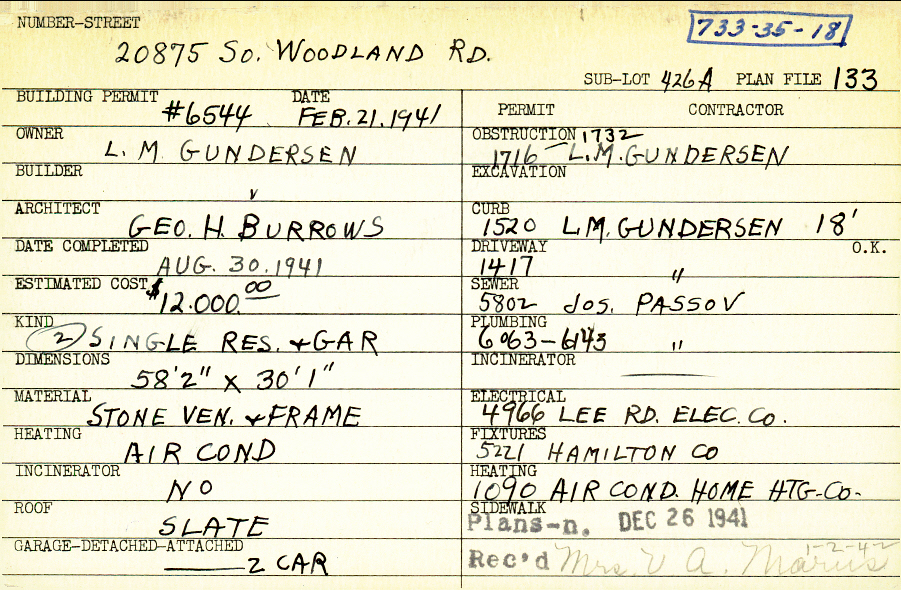 NUMBER-STREET
733-35-18
20875 So. WOODLAND RD.
SUB-LOT 426A PLAN FILE 133
BUILDING PERMIT #6544 DATE FEB. 21, 1941
OWNER L. M. GUNDERSEN
BUILDER
ARCHITECT GEO. H. BURROWS
DATE COMPLETED AUG. 30. 1941
ESTIMATED COST $12.000.00
KIND (2) SINGLE RES. + GAR
DIMENSIONS 58'2" X 30'1"
MATERIAL STONE VEN. + FRAME
HEATING AIR COND
INCINERATOR NO
ROOF SLATE
GARAGE-DETACHED-ATTACHED 2 CAR
PERMIT CONTRACTOR
OBSTRUCTION 1732
1716 L.M. GUNDERSEN
EXCAVATION
CURB 1520 L.M. GUNDERSEN 18'
DRIVEWAY 1417 " O.K.
SEWER 5802 JOS. PASSOV
PLUMBING 6063-6143 "
INCINERATOR
ELECTRICAL 4966 LEE RD. ELEC. Co.
FIXTURES 5221 HAMILTON CO
HEATING 1090 AIR COND. HOME HTG-Co-
SIDEWALK
Plans-n. DEC 26 1941
1-2-42
Rec'd Mrs. V A.